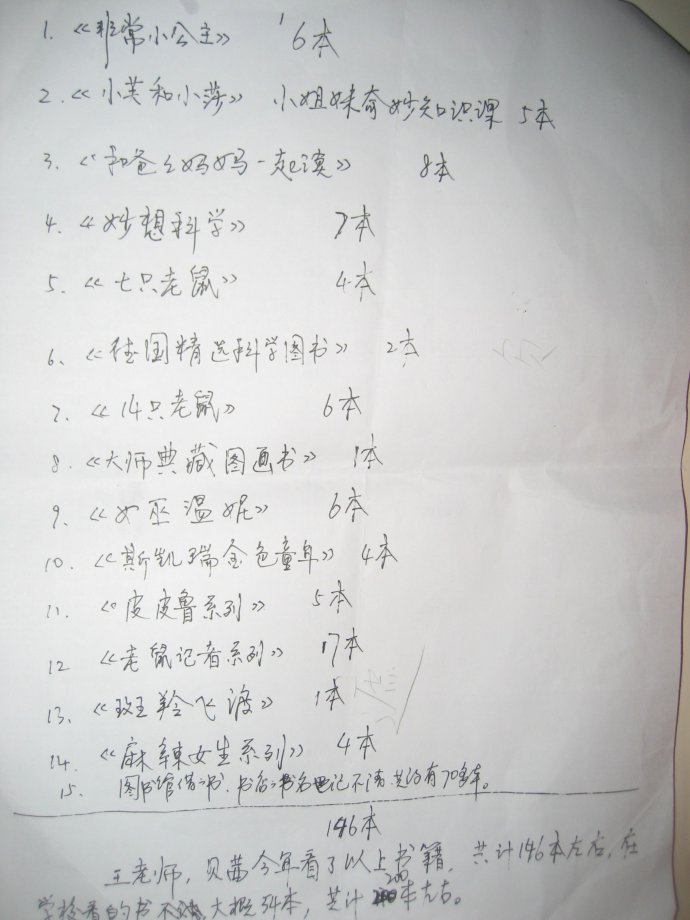 1. 《非常小公主》 6本
2. 《小芙和小莎》 小姐妹奇妙知识课 5本
3. 《和爸爸妈妈一起读》 8本
4. 《妙想科学》 7本
5. 《七只老鼠》 4本
6. 《德国精选科学图书》 2本
7. 《14只老鼠》 6本
8. 《大师典藏图画书》 1本
9. 《女巫温妮》 6本
10. 《斯凯瑞金色童年》 4本
11. 《皮皮鲁系列》 5本
12 《老鼠记者系列》 17本
13. 《斑羚飞渡》 1本
14. 《麻辣女生系列》 4本
15. 图书馆借书, 书名记不清 共约有70多本。
146本
王老师, 贝茜今年看了以上书籍, 共计146本左右, 在
学校看的书不 大概54本, 共计200本左右。